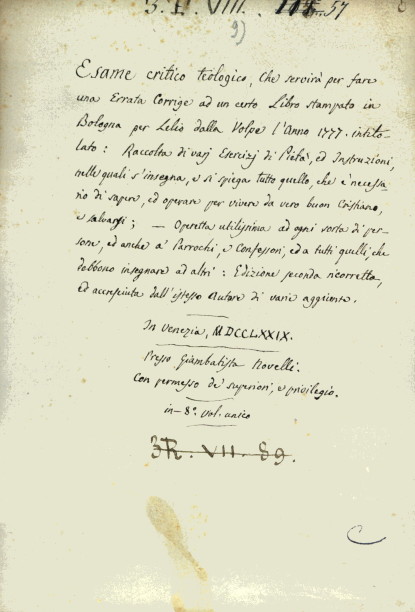 3. F. VIII. 57
9)
Esame critico teologico, che servirà per fare
una Errata Corrige ad un certo Libro stampato in
Bologna per Lelio dalla Volpe l'Anno 1777. intito-
lato: Raccolta di varj Esercizj di Pietà, ed Instruzioni,
nelle quali s'insegna, e si spiega tutto quello, che è necessa-
rio di sapere, ed operare per vivere da vero buon Cristiano,
e salvarsi; — Operetta utilissima ad ogni sorta di per-
sone, ed anche a' Parrochi, e Confessori, ed a tutti quelli, che
debbono insegnare ad altri: Edizione seconda ricorretta,
ed accresciuta dall'istesso Autore di varie aggiunte.
In Venezia, MDCCLXXIX.
Presso Giambatista Novelli.
Con permesso de' superiori, e privilegio.
in-8°. vol. unico
3R. VII. 89.